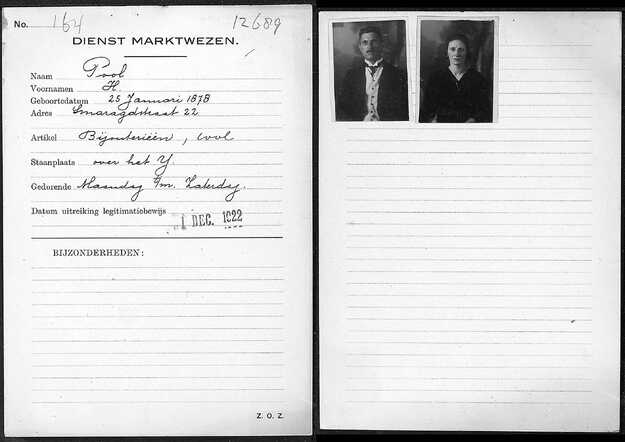 No. 164 12689
DIENST MARKTWEZEN.
Naam Pool
Voornamen H.
Geboortedatum 25 Januari 1878
Adres Smaragdstraat 22
Artikel Bijouterieën, wol
Staanplaats over het Y.
Gedurende Maandag t/m. Zaterdag.
Datum uitreiking legitimatiebewijs 1 DEC. 1922
BIJZONDERHEDEN:
Z. O. Z.